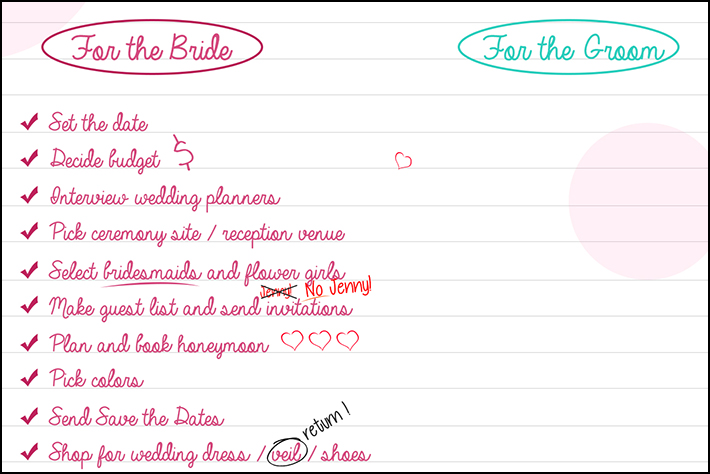 For the Bride
For the Groom
Set the date
Decide budget $
Interview wedding planners
Pick ceremony site / reception venue
Select bridesmaids and flower girls
Jenny! No Jenny!
Make guest list and send invitations
Plan and book honeymoon
Pick colors
Send Save the Dates
return!
Shop for wedding dress / veil / shoes